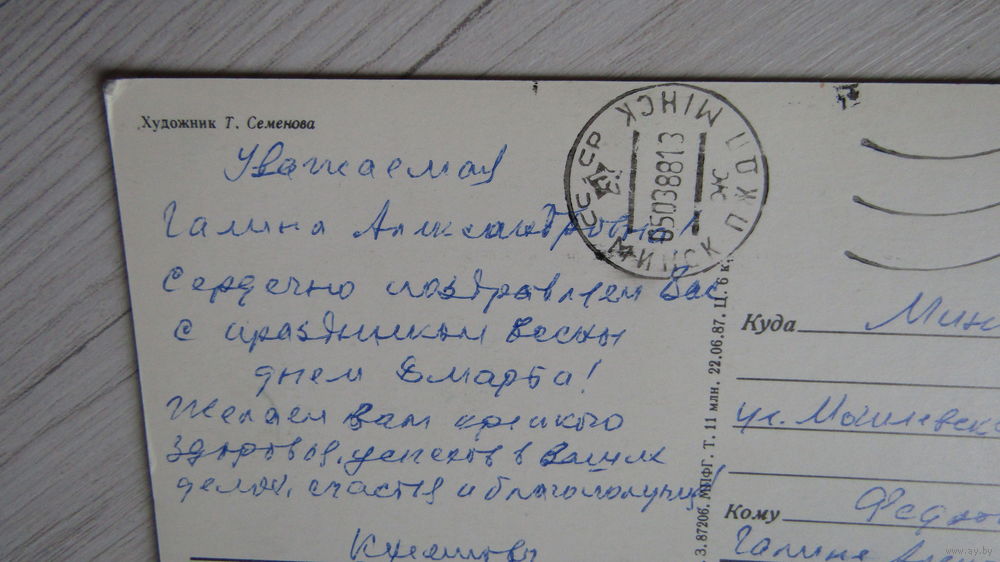 Художник Т. Семенова
Уважаемая
Галина Александровна
Сердечно поздравляем Вас
с праздником весны
днем 8 марта!
Желаем Вам крепкого
здоровья, успехов в Ваших
делах, счастья и благополучия
СССР
МІНСК ППД
0503881 3
Ж
МИНСК ПЖД
З. 87206. МПФГ. Т. 11 млн. 22.06.87. Ц. 6 к.
Куда Мин
ул.
Кому
Галине
www.ay.by